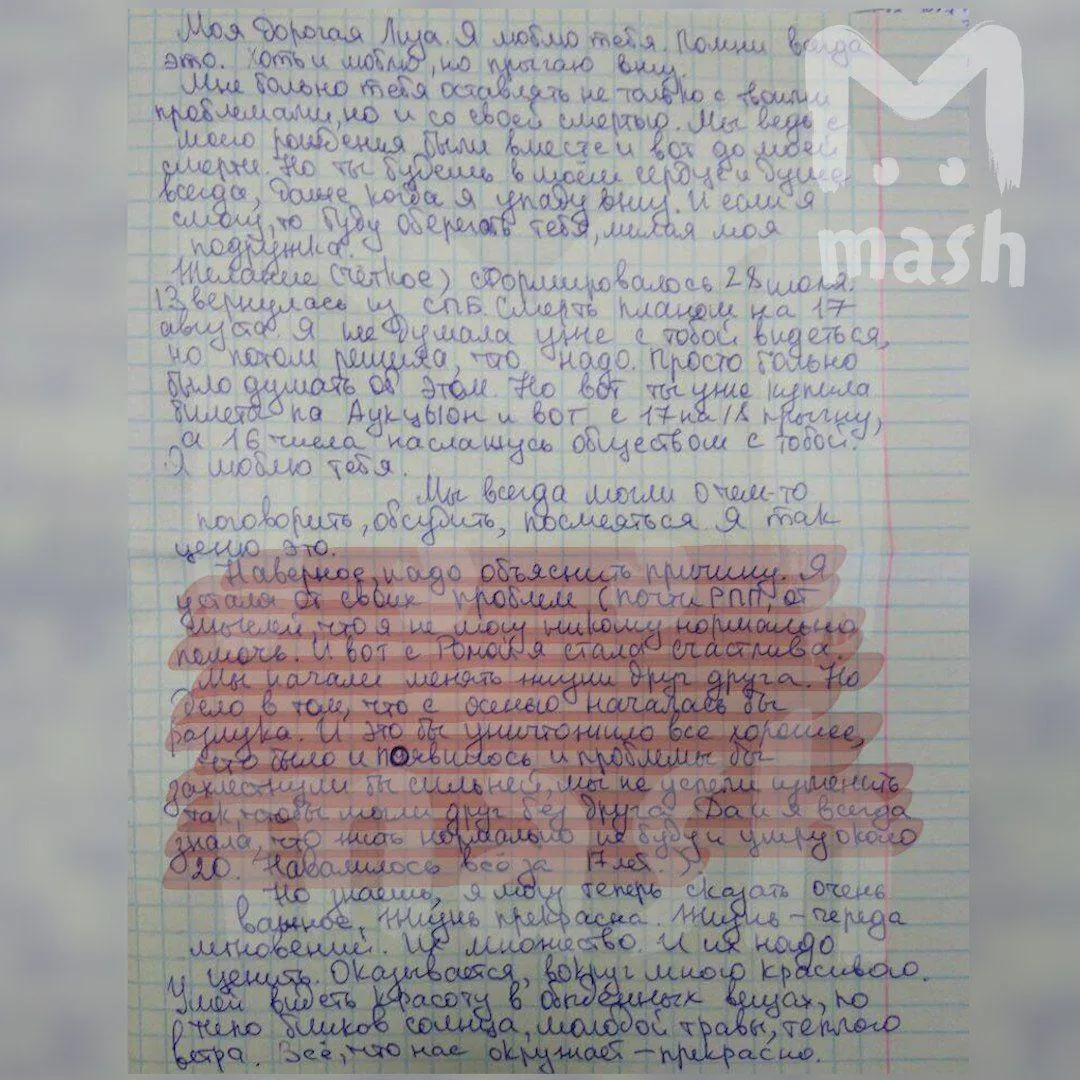 Моя дорогая Лиза. Я люблю тебя. Помни всегда
это. Хоть и люблю, но прыгаю вниз.
Мне больно тебя оставлять не только с твоими
проблемами, но и со своей смертью. Мы ведь с
моего рождения были вместе и вот до моей
смерти. Но ты будешь в моём сердце и душе
всегда, даже когда я упаду вниз. И если я
смогу, то буду оберегать тебя, милая моя
подружка.
Желание (чёткое) сформировалось 28 июля.
13 вернулась из СПБ. Смерть планом на 17
августа. Я не думала уже с тобой видеться,
но потом решила, что надо. Просто больно
было думать об этом. Но вот ты уже купила
билеты на Аукцыон и вот с 17 на 18 прыгну,
а 16 числа наслажусь обществом с тобой.
Я люблю тебя.
Мы всегда могли о чем-то
поговорить, обсудить, посмеяться. Я так
ценю это.
Наверное, надо объяснить причину. Я
устала от своих проблем (почти РПП, от
мыслей, что я не могу никому нормально
помочь. И вот с Ромой я стала счастлива.
Мы начали менять жизни друг друга. Но
дело в том, что с осенью началась бы
разлука. И это бы уничтожило все хорошее,
что было и появилось, и проблемы бы
захлестнули бы сильней, мы не успели изменить
так чтобы могли друг без друга. Да и я всегда
знала, что жить нормально не буду и умру около
20. Навалилось всё за 17 лет. )
Но знаешь, я могу теперь сказать очень
важное, Жизнь прекрасна. Жизнь – череда
мгновений. Их множество. И их надо
ценить. Оказывается, вокруг много красивого.
Умей видеть красоту в обыденных вещах, по
бликов солнца, молодой травы, теплого
ветра. Всё, что нас окружает – прекрасно.
mash